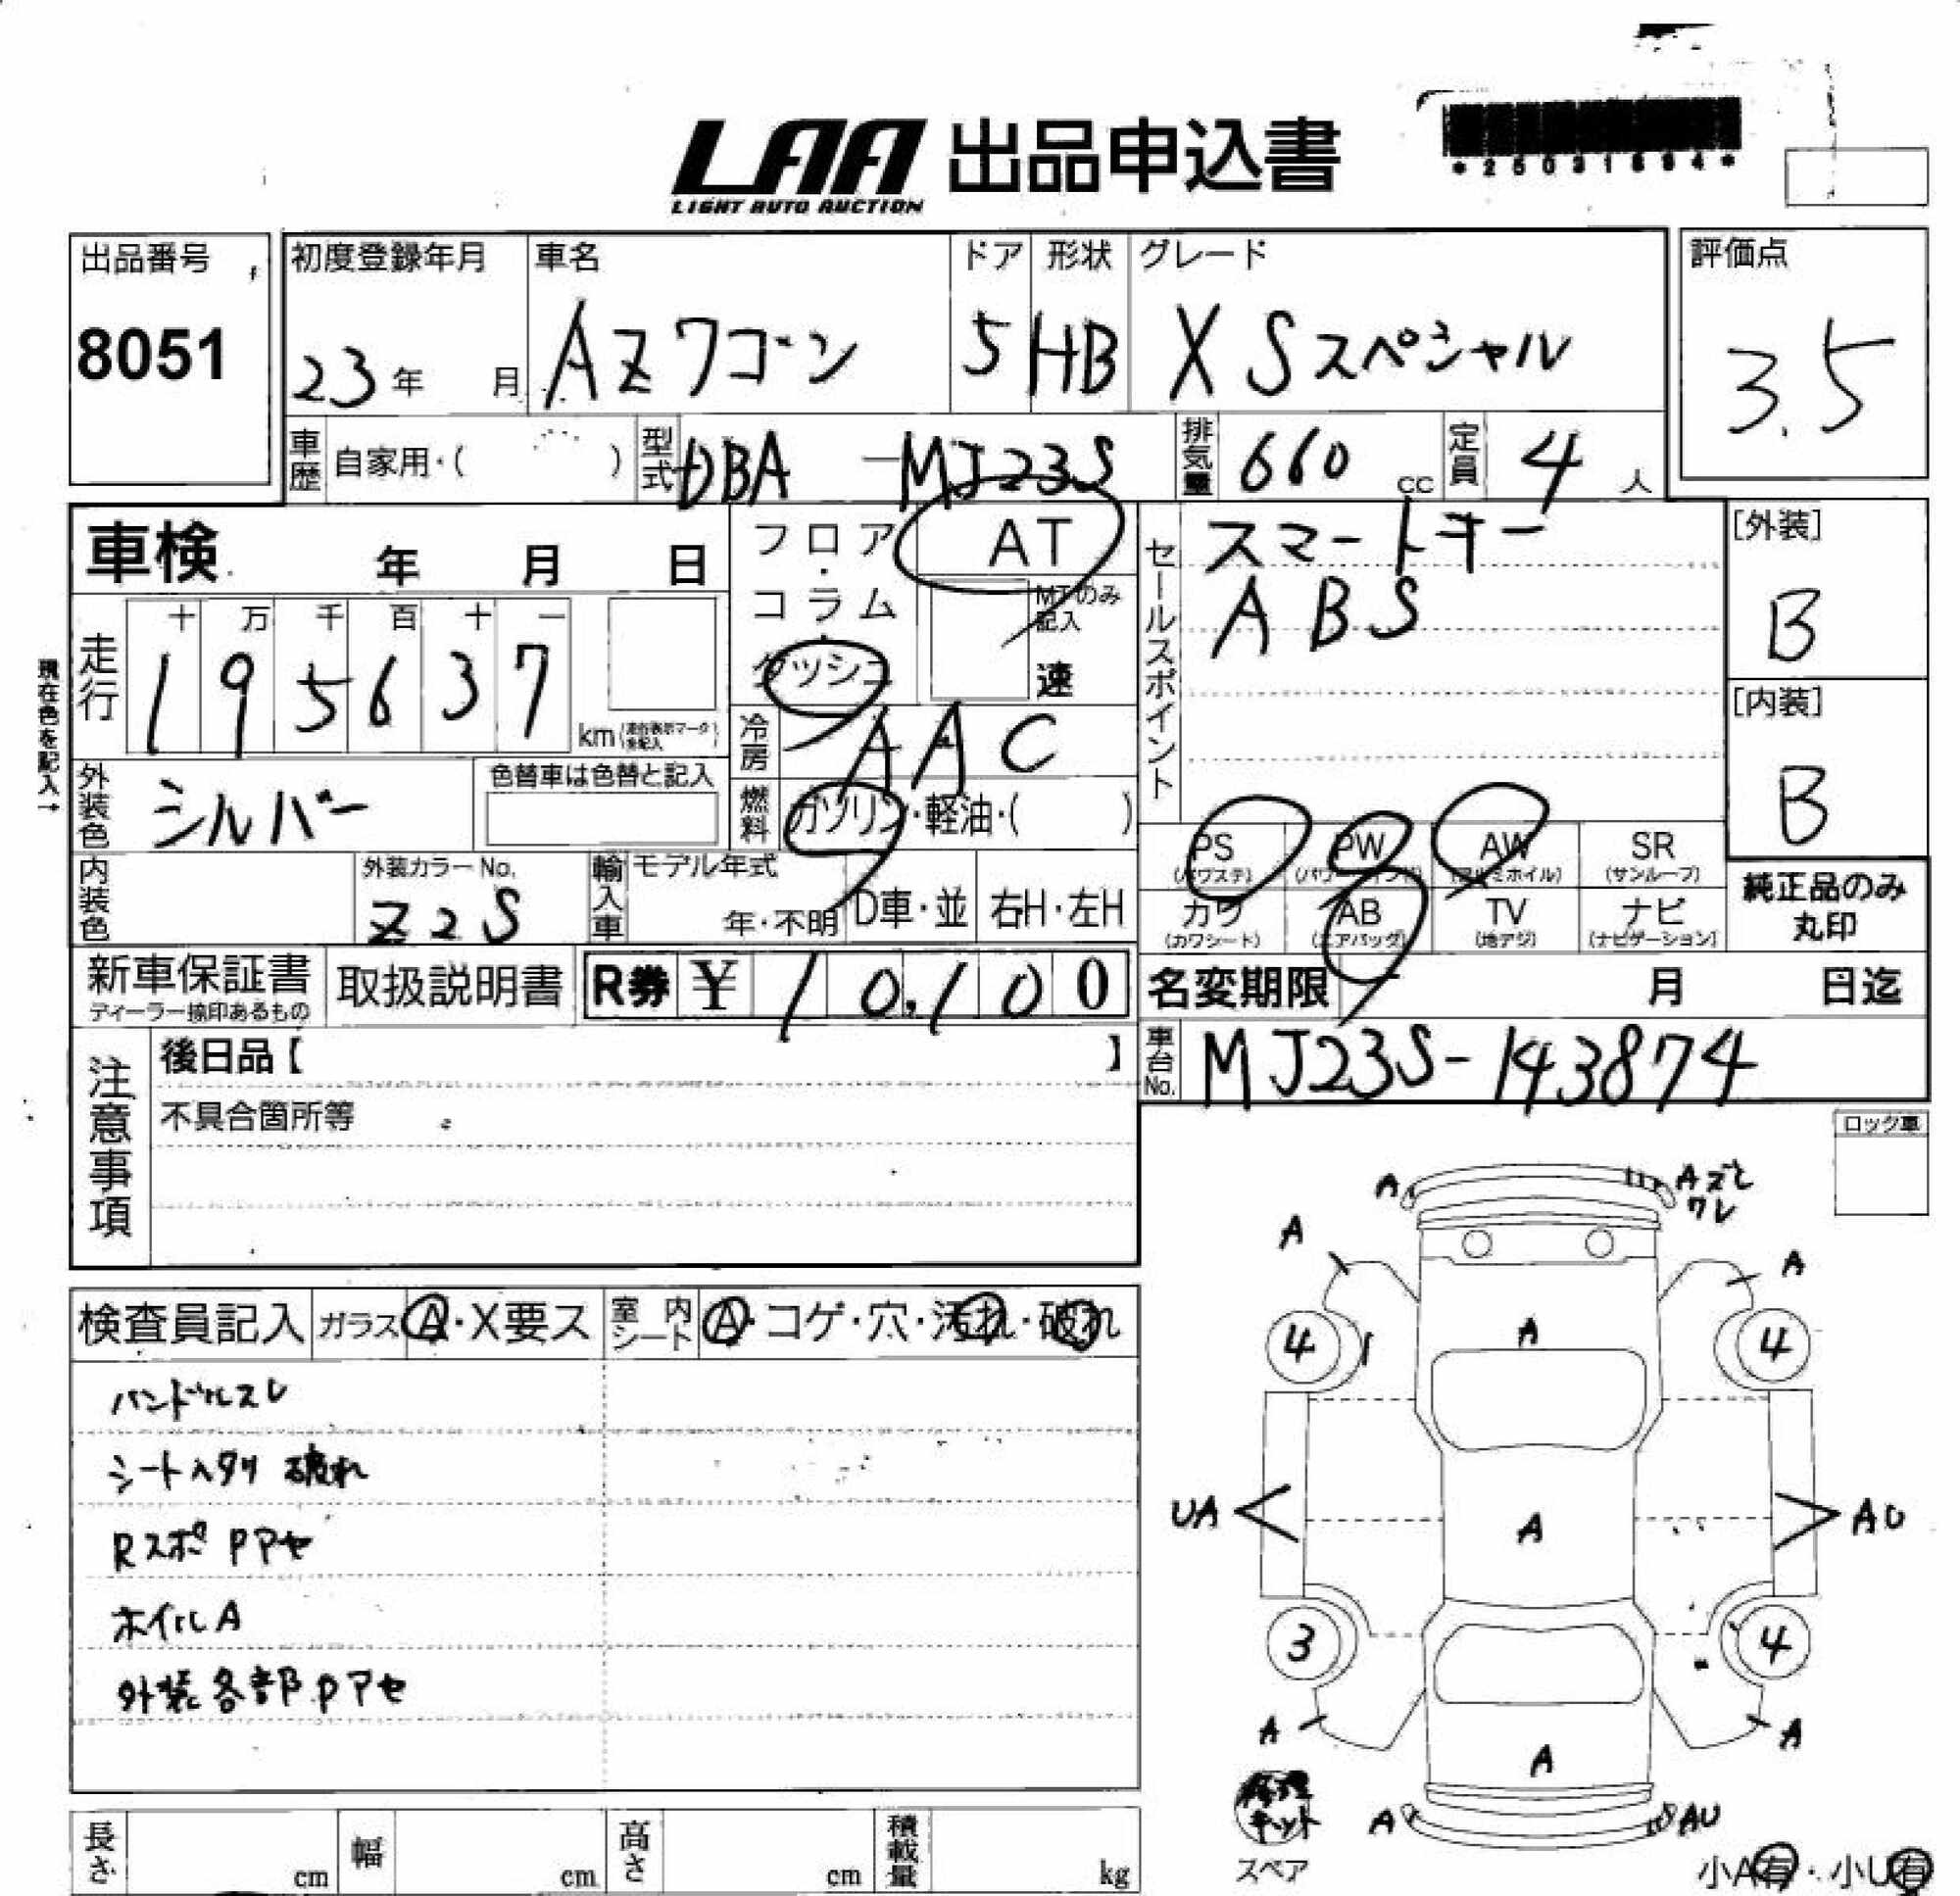 LAA 出品申込書
LIGHT AUTO AUCTION
出品番号
8051
初度登録年月
23年 月
車名
AZワゴン
ドア
5
形状
HB
グレード
XSスペシャル
評価点
3.5
車歴 自家用・( )
型式 DBA-MJ23S
排気量 660 cc
定員 4 人
車検 年 月 日
フロア・コラム・ダッシュ
AT
MTのみ記入
速
セールスポイント
スマートキー
ABS
[外装]
B
[内装]
B
現在色を記入→
走行
十 万 千 百 十 一
1 9 5 6 3 7
km
冷房 AAC
外装色 シルバー
色替車は色替と記入
燃料 ガソリン・軽油・( )
PS (パワステ)
PW
AW (アルミホイル)
SR (サンルーフ)
カワ (カワシート)
AB (エアバッグ)
TV (地デジ)
ナビ (ナビゲーション)
純正品のみ
丸印
内装色
外装カラーNo.
Z2S
輸入車
モデル年式
年・不明
D車・並
右H・左H
新車保証書
ディーラー捺印あるもの
取扱説明書
R券 ¥ 10,100
名変期限 月 日迄
車台No. MJ23S-143874
注意事項
後日品【 】
不具合箇所等
ロック車
検査員記入
ガラス A・X要ス
室内シート A・コゲ・穴・汚れ・破れ
ハンドルスレ
シートヘタリ 破れ
Rスポ Pアセ
ホイルA
外装各部Pアセ
A
Aズレ
ワレ
A
A
4
A
4
UA
A
AU
3
4
A
A
A
修理
キット
スペア
A
AU
小A有・小U有
長さ cm
幅 cm
高さ cm
積載量 kg